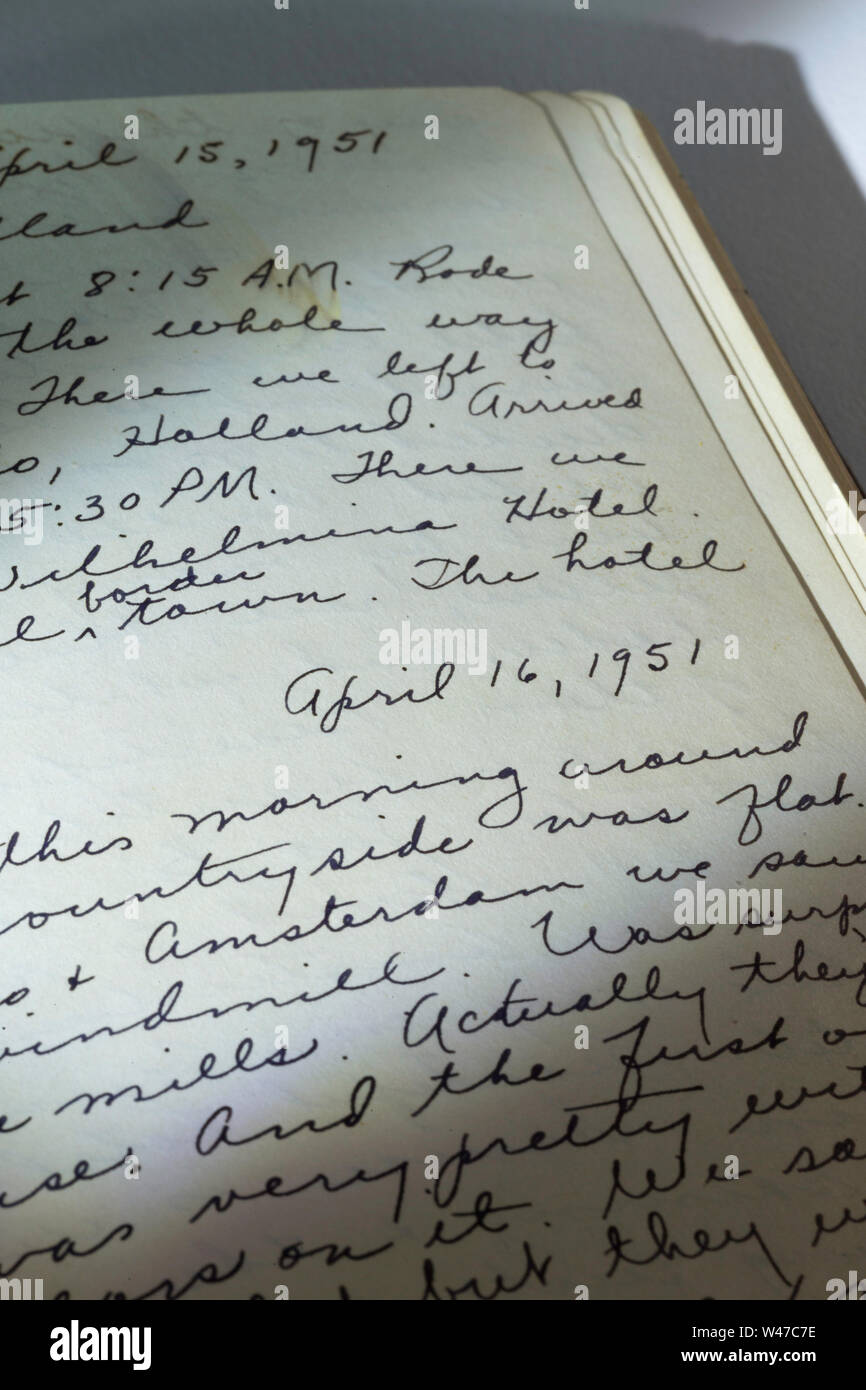 April 15, 1951
lland
t 8:15 A.M. Rode
the whole way
There we left to
o, Holland. Arrived
5:30 PM. There we
Wilhelmina Hotel.
l border town. The hotel
April 16, 1951
this morning around
countryside was flat.
o + Amsterdam we saw
windmill. Was surp
e mills. Actually they
use. And the first o
was very pretty wit
on it. We sa
but they w
alamy
W47C7E
www.alamy.com